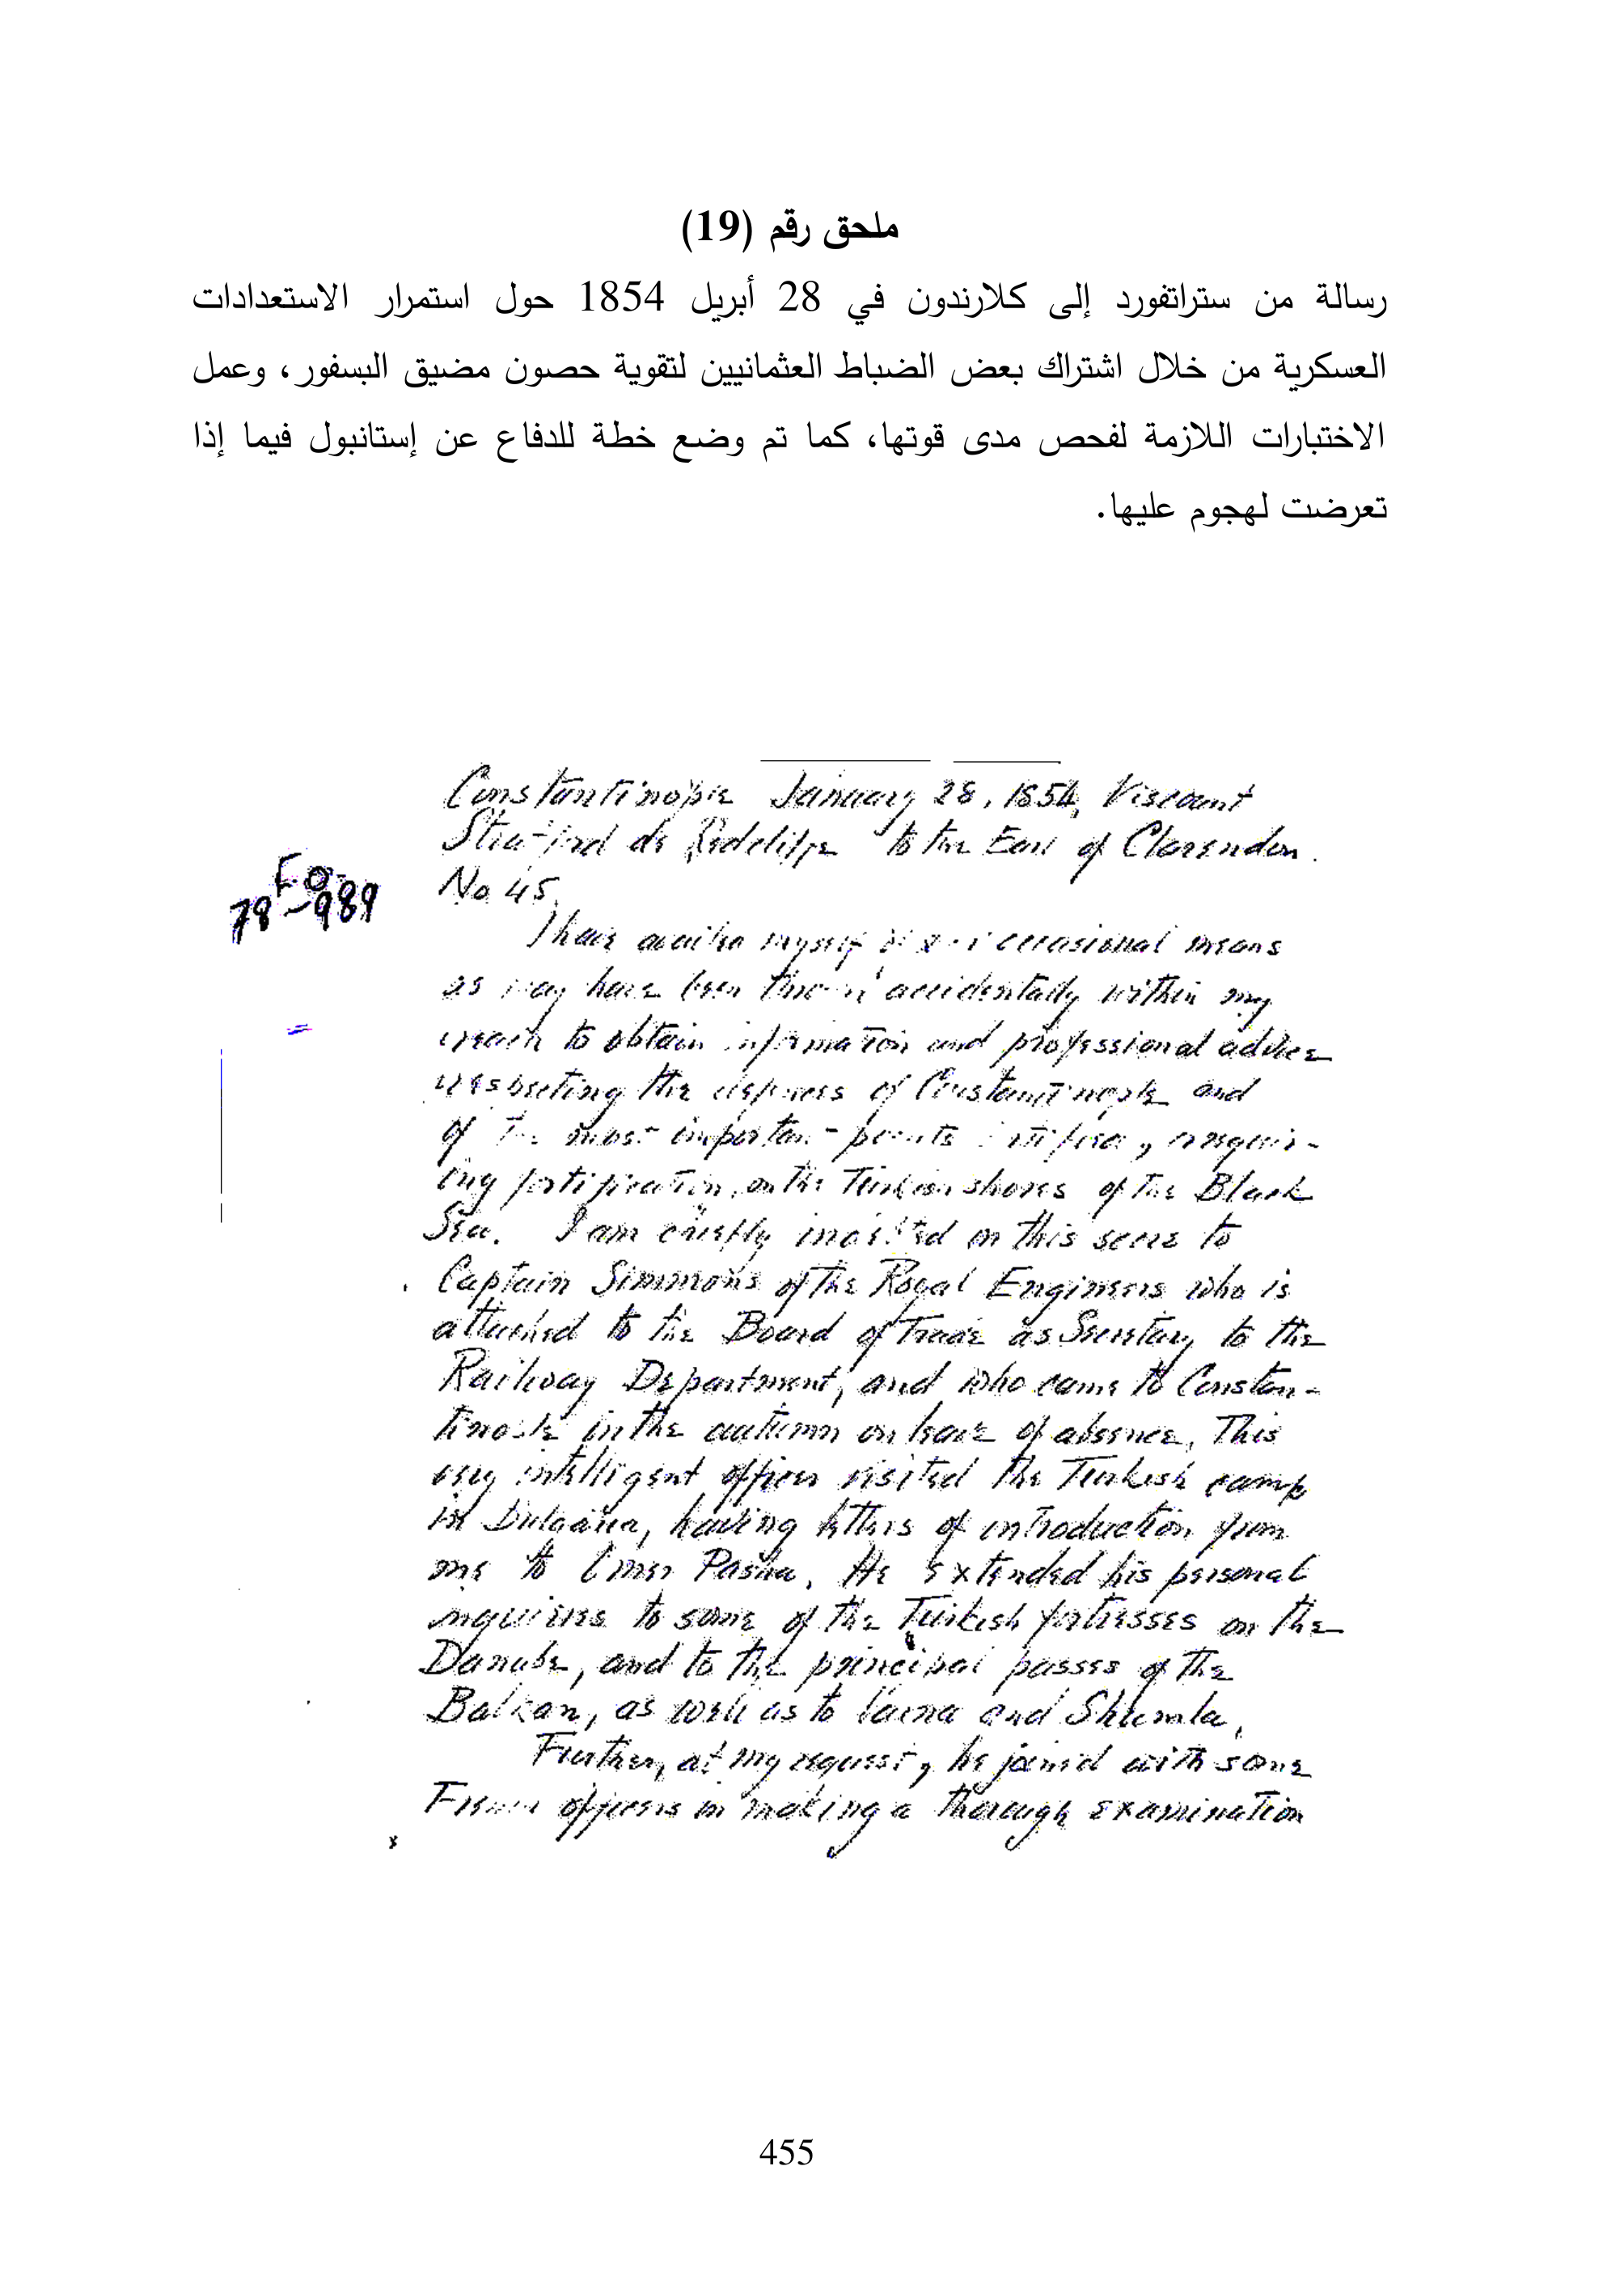 ملحق رقم (19)
رسالة من ستراتفورد إلى كلارندون في 28 أبريل 1854 حول استمرار الاستعدادات
العسكرية من خلال اشتراك بعض الضباط العثمانيين لتقوية حصون مضيق البسفور، وعمل
الاختبارات اللازمة لفحص مدى قوتها، كما تم وضع خطة للدفاع عن إستانبول فيما إذا
تعرضت لهجوم عليها.
Constantinople January 28, 1854, Viscount
Stratford de Redcliffe to the Earl of Clarendon.
No 45.
F.O.
78-989
I have availed myself occasional means
as may have been thrown accidentally within my
reach to obtain information and professional advice
respecting the defences of Constantinople and
of the most important points requir-
ing fortification, on the Turkish shores of the Black
Sea. I am chiefly indebted on this score to
Captain Simmons of the Royal Engineers who is
attached to the Board of Trade as Secretary to the
Railway Department, and who came to Constan-
tinople in the autumn on leave of absence. This
very intelligent officer visited the Turkish camp
in Bulgaria, having letters of introduction from
me to Omer Pasha. He extended his personal
inquiries to some of the Turkish fortresses on the
Danube, and to the principal passes of the
Balkan, as well as to Varna and Shumla.
Further, at my request, he joined with some
French officers in making a thorough examination
455